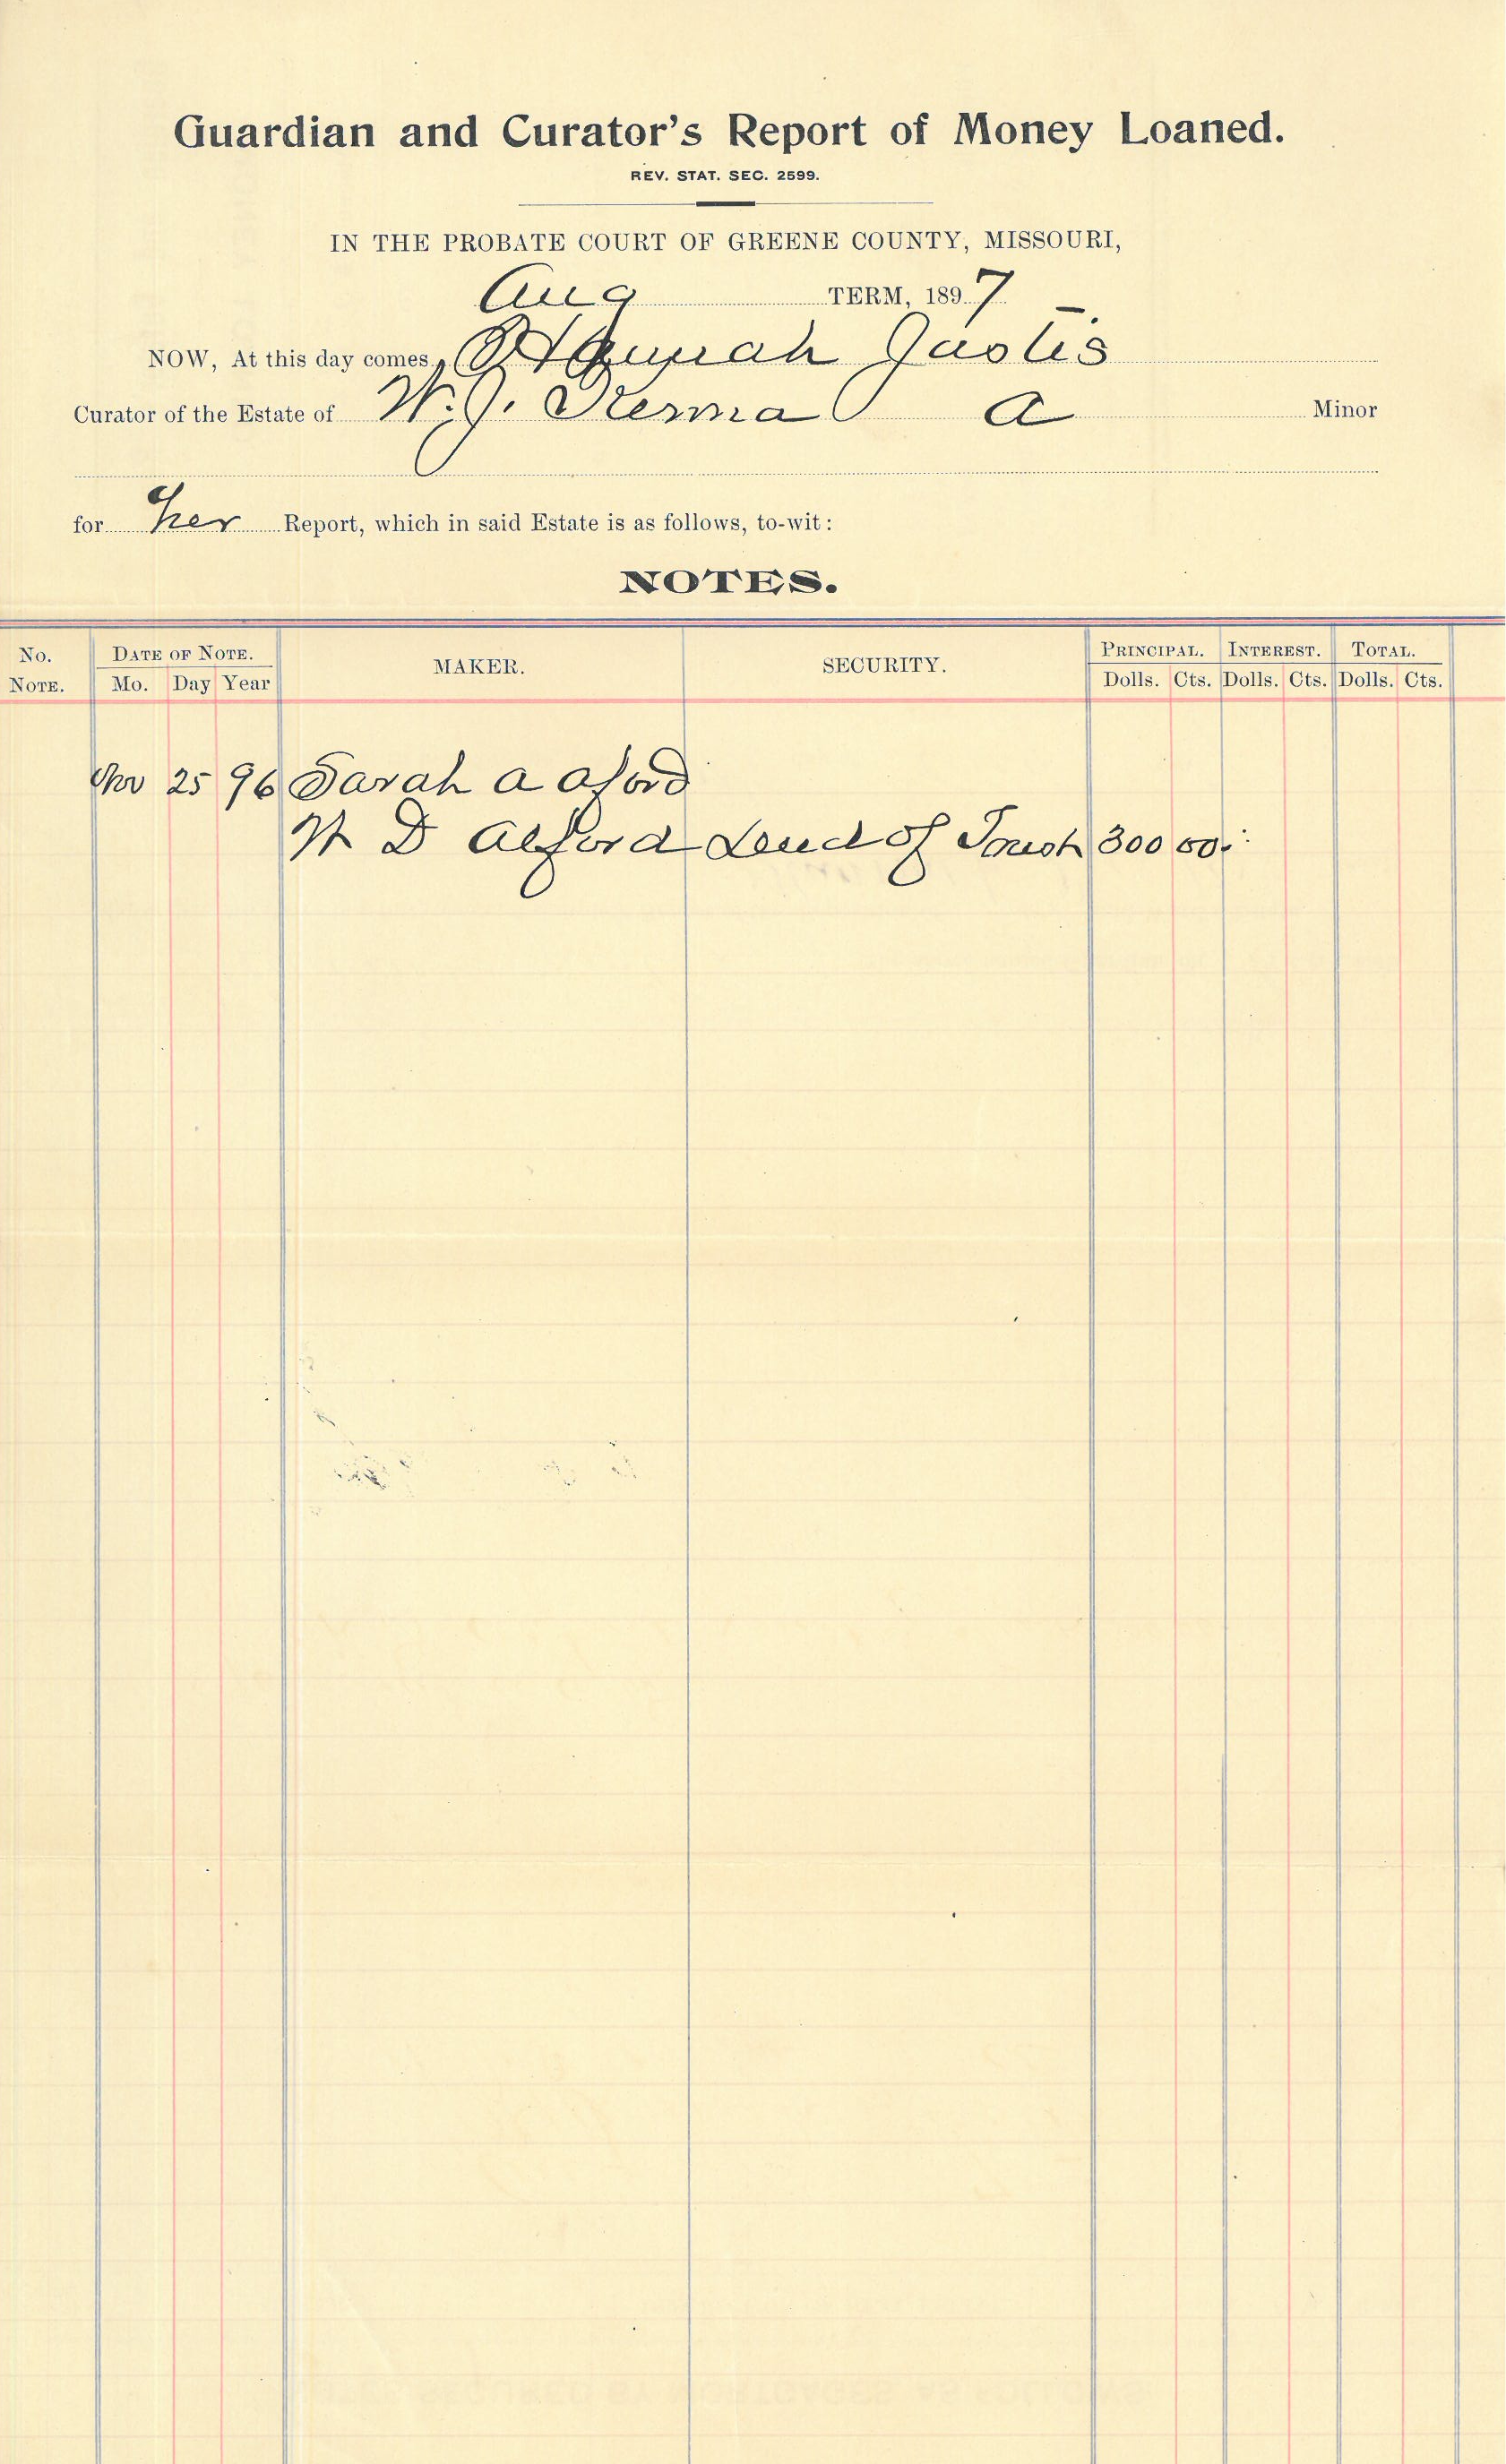 Guardian and Curator's Report of Money Loaned.
REV. STAT. SEC. 2599.
IN THE PROBATE COURT OF GREENE COUNTY, MISSOURI,
Aug TERM, 1897
NOW, At this day comes Hannah Justis
Curator of the Estate of W. J. a Minor
for her Report, which in said Estate is as follows, to-wit:
NOTES.
No. NOTE. DATE OF NOTE. Mo. Day Year MAKER. SECURITY. PRINCIPAL. Dolls. Cts. INTEREST. Dolls. Cts. TOTAL. Dolls. Cts.
Nov 25 96 Sarah a aford
W D Alford Deed of Trust 300 00